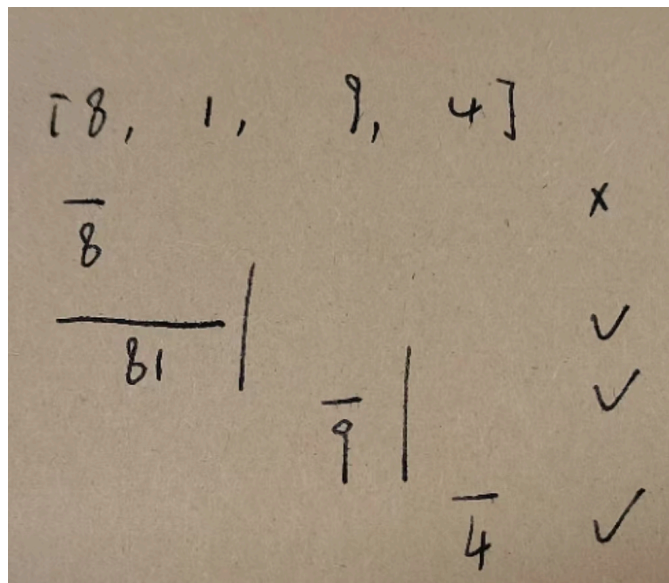 [8, 1, 9, 4]
8 ×
81 ✓
9 ✓
4 ✓